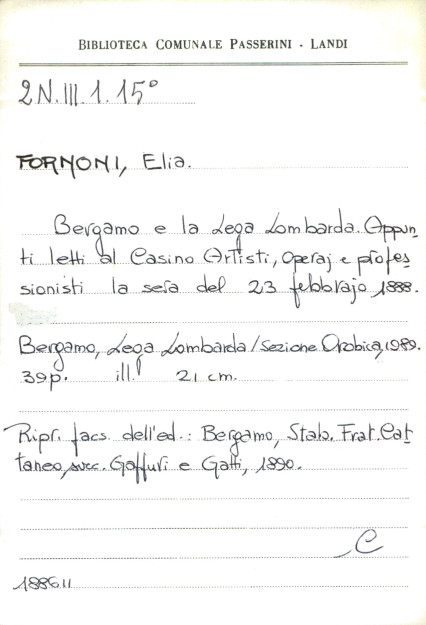 BIBLIOTECA COMUNALE PASSERINI - LANDI
2N.III.1.15°
FORNONI, Elia.
Bergamo e la Lega Lombarda. Appun-
ti letti al Casino Artisti, Operaj e profes-
sionisti la sera del 23 febbrajo 1888.
Bergamo, Lega Lombarda/Sezione Orobica, 1989.
39p. ill. 21 cm.
Ripr. facs. dell'ed.: Bergamo, Stab. Frat. Cat-
taneo, succ. Gaffuri e Gatti, 1890.
C
188611